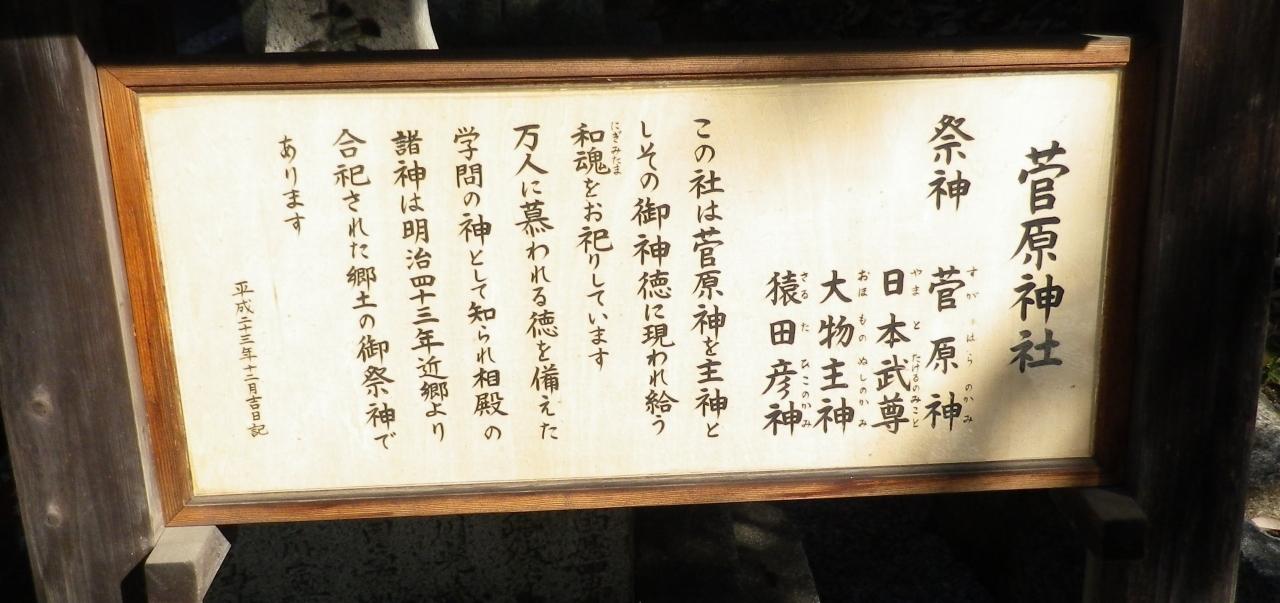 菅原神社
祭神
菅原神
すがはらのかみ
日本武尊
やまとたけるのみこと
大物主神
おほものぬしのかみ
猿田彦神
さるたひこのかみ
この社は菅原神を主神と
しその御神徳に現われ給う
和魂をお祀りしています
にぎみたま
万人に慕われる徳を備えた
学問の神として知られ相殿の
諸神は明治四十三年近郷より
合祀された郷土の御祭神で
あります
平成二十三年十二月吉日記